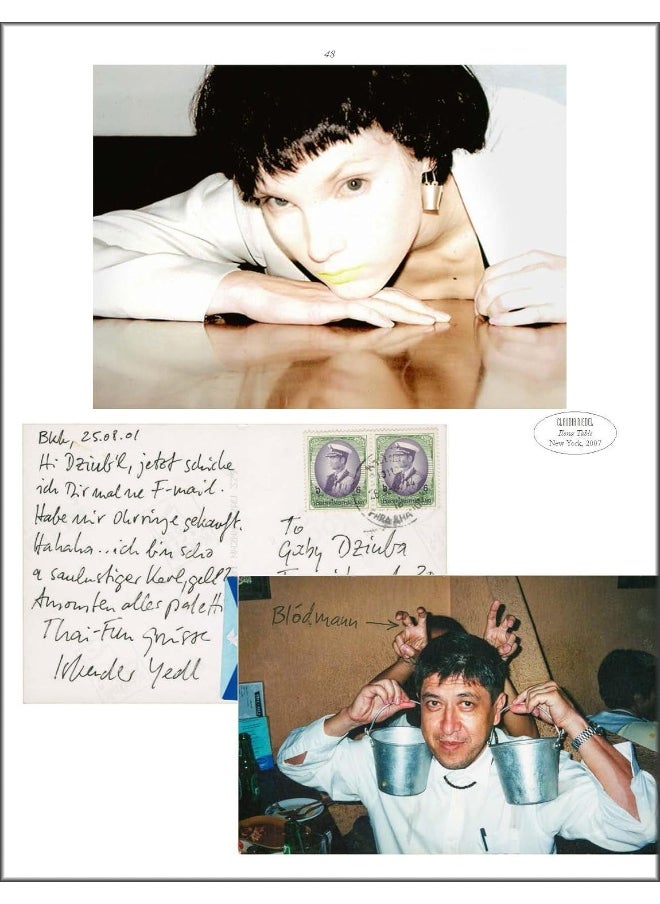 48
CLAUDIA RIEDEL
Ilona Table
New York, 2007
Bkk, 25.08.01
Hi Dziub'l, jetzt schicke
ich Dir mal ne F-mail.
Habe mir Ohrringe gekauft.
Hahaha.. ich bin scho
a saulustiger Karl, gell?
Ansonsten alles paletti
Thai-Fun grüsse
To
Gaby Dziuba
Blödmann